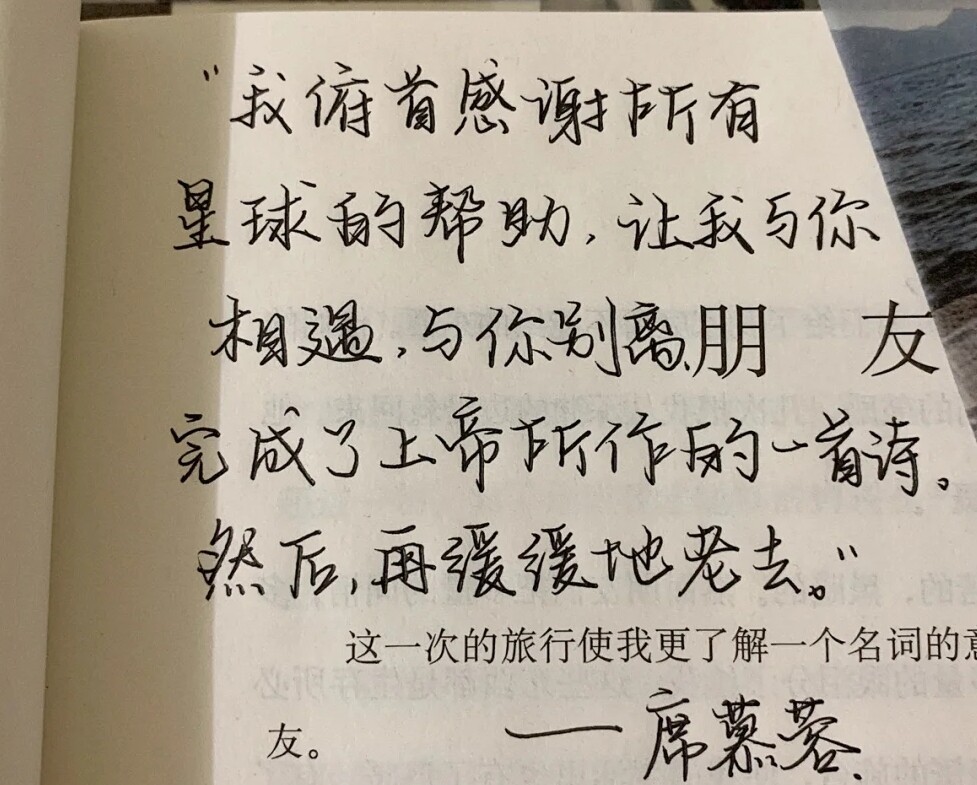 “我俯首感谢所有
星球的帮助,让我与你
相遇,与你别离,朋 友
完成了上帝所作的一首诗。
然后,再缓缓地老去。”
这一次的旅行使我更了解一个名词的意
友。
——席慕蓉.